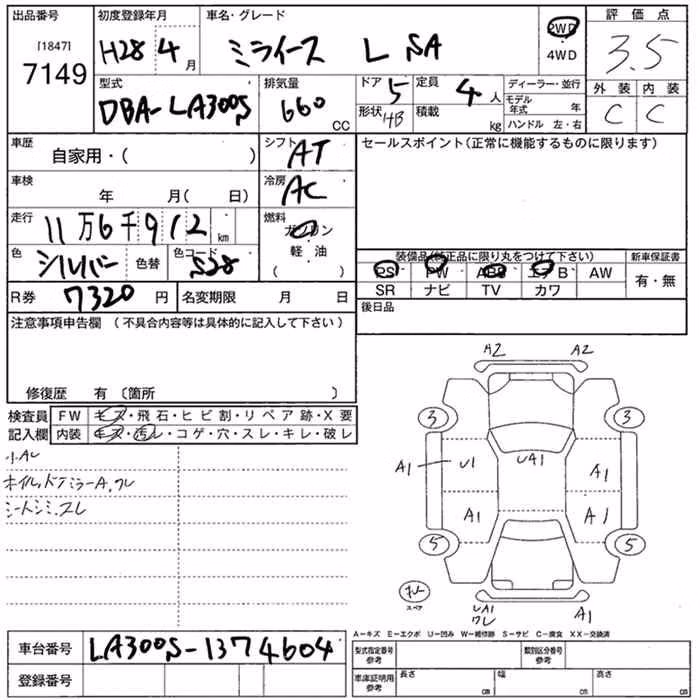 出品番号 初度登録年月 車名・グレード 2WD 評価点
[1847] 7149 H28 4月 ミライース L SA 4WD 3.5
型式 排気量 ドア 5 定員 4人 ディーラー・並行 外装 内装
DBA-LA300S 660 CC 形状 HB 積載 kg モデル年式 年 C C
ハンドル 左・右
車歴 自家用・( ) シフト AT セールスポイント(正常に機能するものに限ります)
車検 年 月( 日) 冷房 AC
走行 11万6千912 km 燃料 ガソリン
色 シルバー 色替 色コード S28 軽・油 ( )
装備品(純正品に限り丸をつけて下さい) 新車保証書
PS PW ABS エアB AW 有・無
SR ナビ TV カワ
R券 7320円 名変期限 月 日 後日品
注意事項申告欄 (不具合内容等は具体的に記入して下さい)
修復歴 有 (箇所 )
検査員 FW キズ・飛石・ヒビ割・リペア跡・X要
記入欄 内装 キズ・汚レ・コゲ・穴・スレ・キレ・破レ
小AU
ホイル,ドアミラーA,ワレ
シートシミ,スレ
A2 A2
3 3
A1 U1 UA1 A1
A1 A1
5 5
スペア
UA1 ワレ A1
A-キズ E-エクボ U-凹み W-補修跡 S-サビ C-腐食 XX-交換済
車台番号 LA300S-1374604 型式指定番号 参考 類別区分番号 参考
登録番号 車庫証明用 参考 長さ cm 幅 cm 高さ cm